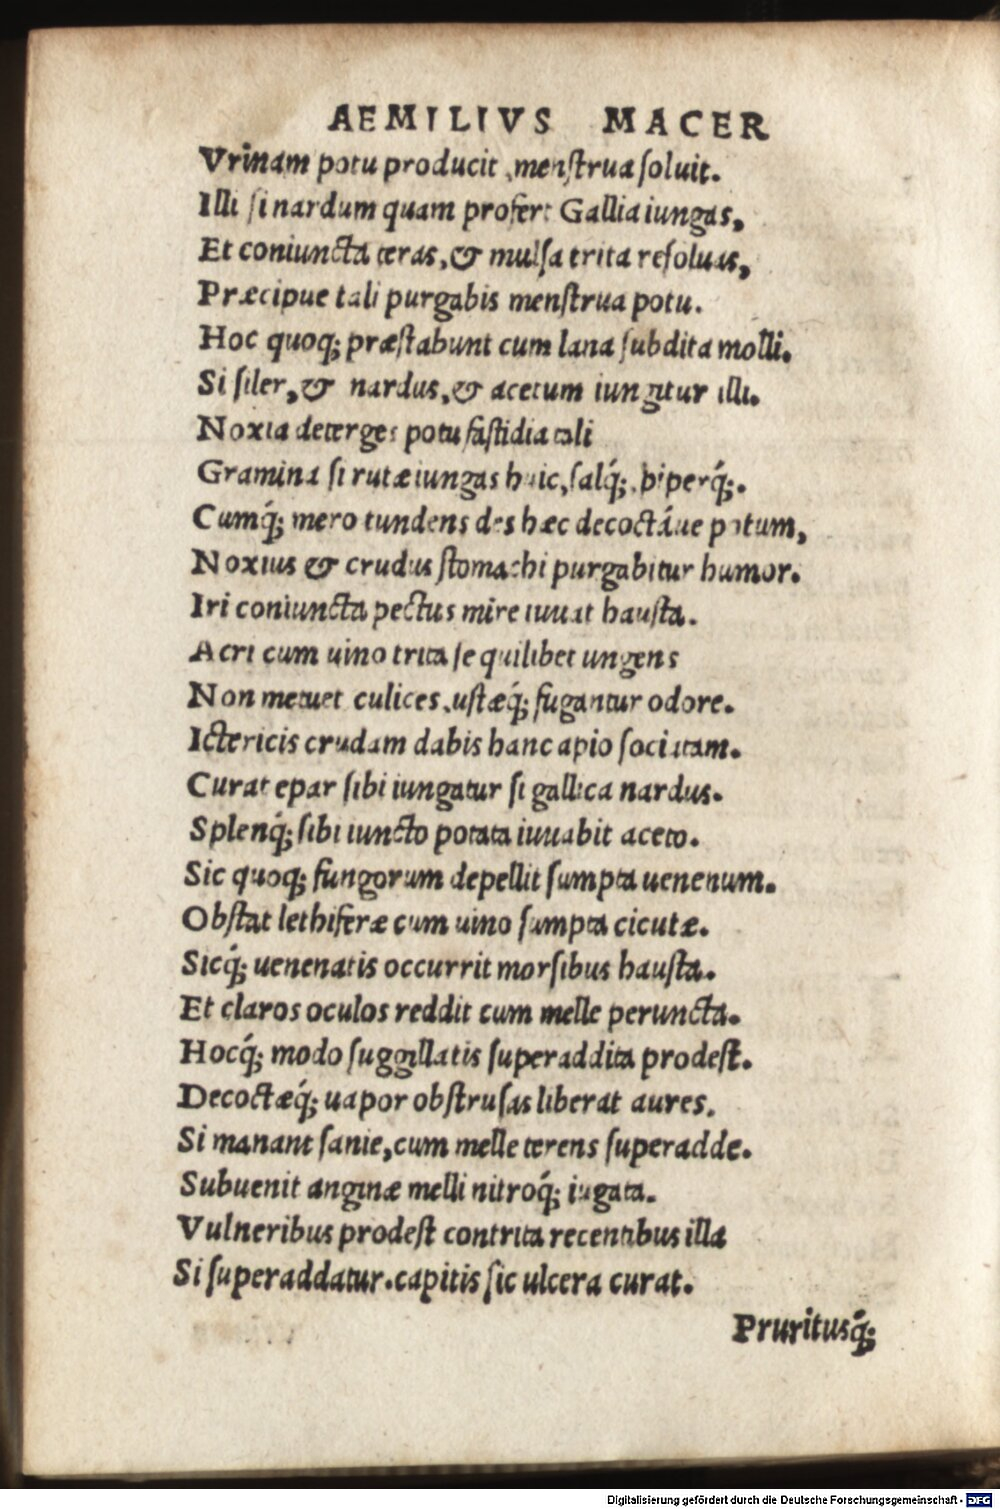 AEMILIVS MACER
Vrinam potu producit, menſtrua ſoluit.
Illi ſi nardum quam profert Gallia iungas,
Et coniuncta teras, & mulſa trita reſoluas,
Præcipue tali purgabis menſtrua potu.
Hoc quoq; præſtabunt cum lana ſubdita molli.
Si ſiler, & nardus, & acetum iungitur illi.
Noxia deterges potu faſtidia tali
Gramina ſi rutæ iungas huic, ſalq́;, piperq́;.
Cumq́; mero tundens des hæc decoctáue potum,
Noxius & crudus ſtomachi purgabitur humor.
Iri coniuncta pectus mire iuuat hauſta.
Acri cum uino trita ſe quilibet ungens
Non metuet culices, uſtæq́; fugantur odore.
Ictericis crudam dabis hanc apio ſociatam.
Curat epar ſibi iungatur ſi gallica nardus.
Splenq́; ſibi iuncto potata iuuabit aceto.
Sic quoq; fungorum depellit ſumpta uenenum.
Obſtat lethiferæ cum uino ſumpta cicutæ.
Sicq́; uenenatis occurrit morſibus hauſta.
Et claros oculos reddit cum melle peruncta.
Hocq́; modo ſuggillatis ſuperaddita prodeſt.
Decoctæq́; uapor obſtruſas liberat aures.
Si manant ſanie, cum melle terens ſuperadde.
Subuenit anginæ melli nitroq́; iugata.
Vulneribus prodeſt contrita recentibus illa
Si ſuperaddatur. capitis ſic ulcera curat.
Pruritusq́;
Digitalisierung gefördert durch die Deutsche Forschungsgemeinschaft - DFG